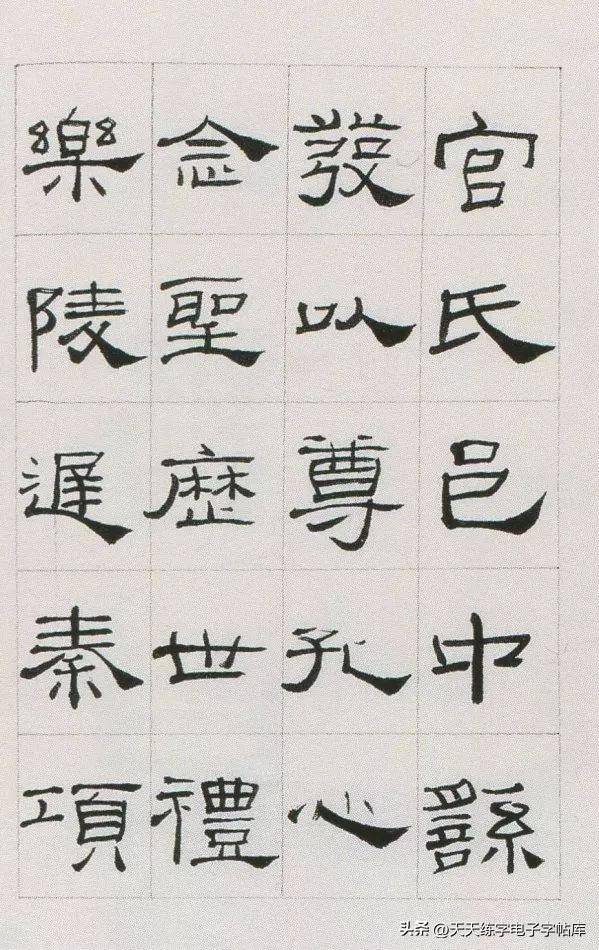 官氏邑中繇
發以尊孔心
念聖歷世禮
樂陵遲秦項
头条 @天天练字电子字帖库